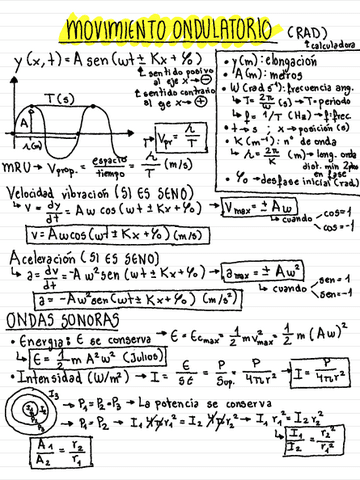 MOVIMIENTO ONDULATORIO (RAD)
↳ calculadora
y(x,t) = A sen(ωt ± Kx + φ₀)
↳ sentido positivo al eje x → ⊖
↳ sentido contrario al eje x → ⊕
T(s)
A
λ(m)
Vpr = λ/T
MRU → Vprop. = espacio/tiempo = λ/T (m/s)
• y(m): elongación
• A(m): metros
• W(rad s⁻¹): frecuencia ang.
↳ T = 2π/ω (s) → T = periodo
↳ f = 1/T (Hz) → f: frec.
• t → s ; x → posición (s)
• K (m⁻¹): nº de onda
↳ λ = 2π/K (m) → long. onda
dist. min 2 ptos en fase
• φ₀ → desfase inicial (rad)
Velocidad vibración (SI ES SENO)
↳ v = dy/dt = Aω cos(ωt ± Kx + φ₀) → Vmax = ± Aω
↳ cuando cos=1 cos=-1
v = Aω cos(ωt ± Kx + φ₀) (m/s)
Aceleración (SI ES SENO)
↳ a = dv/dt = -Aω² sen(ωt ± Kx + φ₀) → amax = ± Aω²
↳ cuando sen=1 sen=-1
a = -Aω² sen(ωt ± Kx + φ₀) (m/s²)
ONDAS SONORAS
• Energía: E se conserva → E = Ecmax = 1/2 m v²max = 1/2 m (Aω)²
↳ E = 1/2 m A² ω² (Julios)
• Intensidad (W/m²) → I = E/St = P/Sup. = P/4πr² → I = P/4πr²
I₃
→ P₁ = P₂ = P₃ → La potencia se conserva
→ P₁ = P₂ → I₁ 4πr₁² = I₂ 4πr₂² → I₁ r₁² = I₂ r₂²
A₁/A₂ = r₂/r₁
↳ I₁/I₂ = r₂²/r₁²